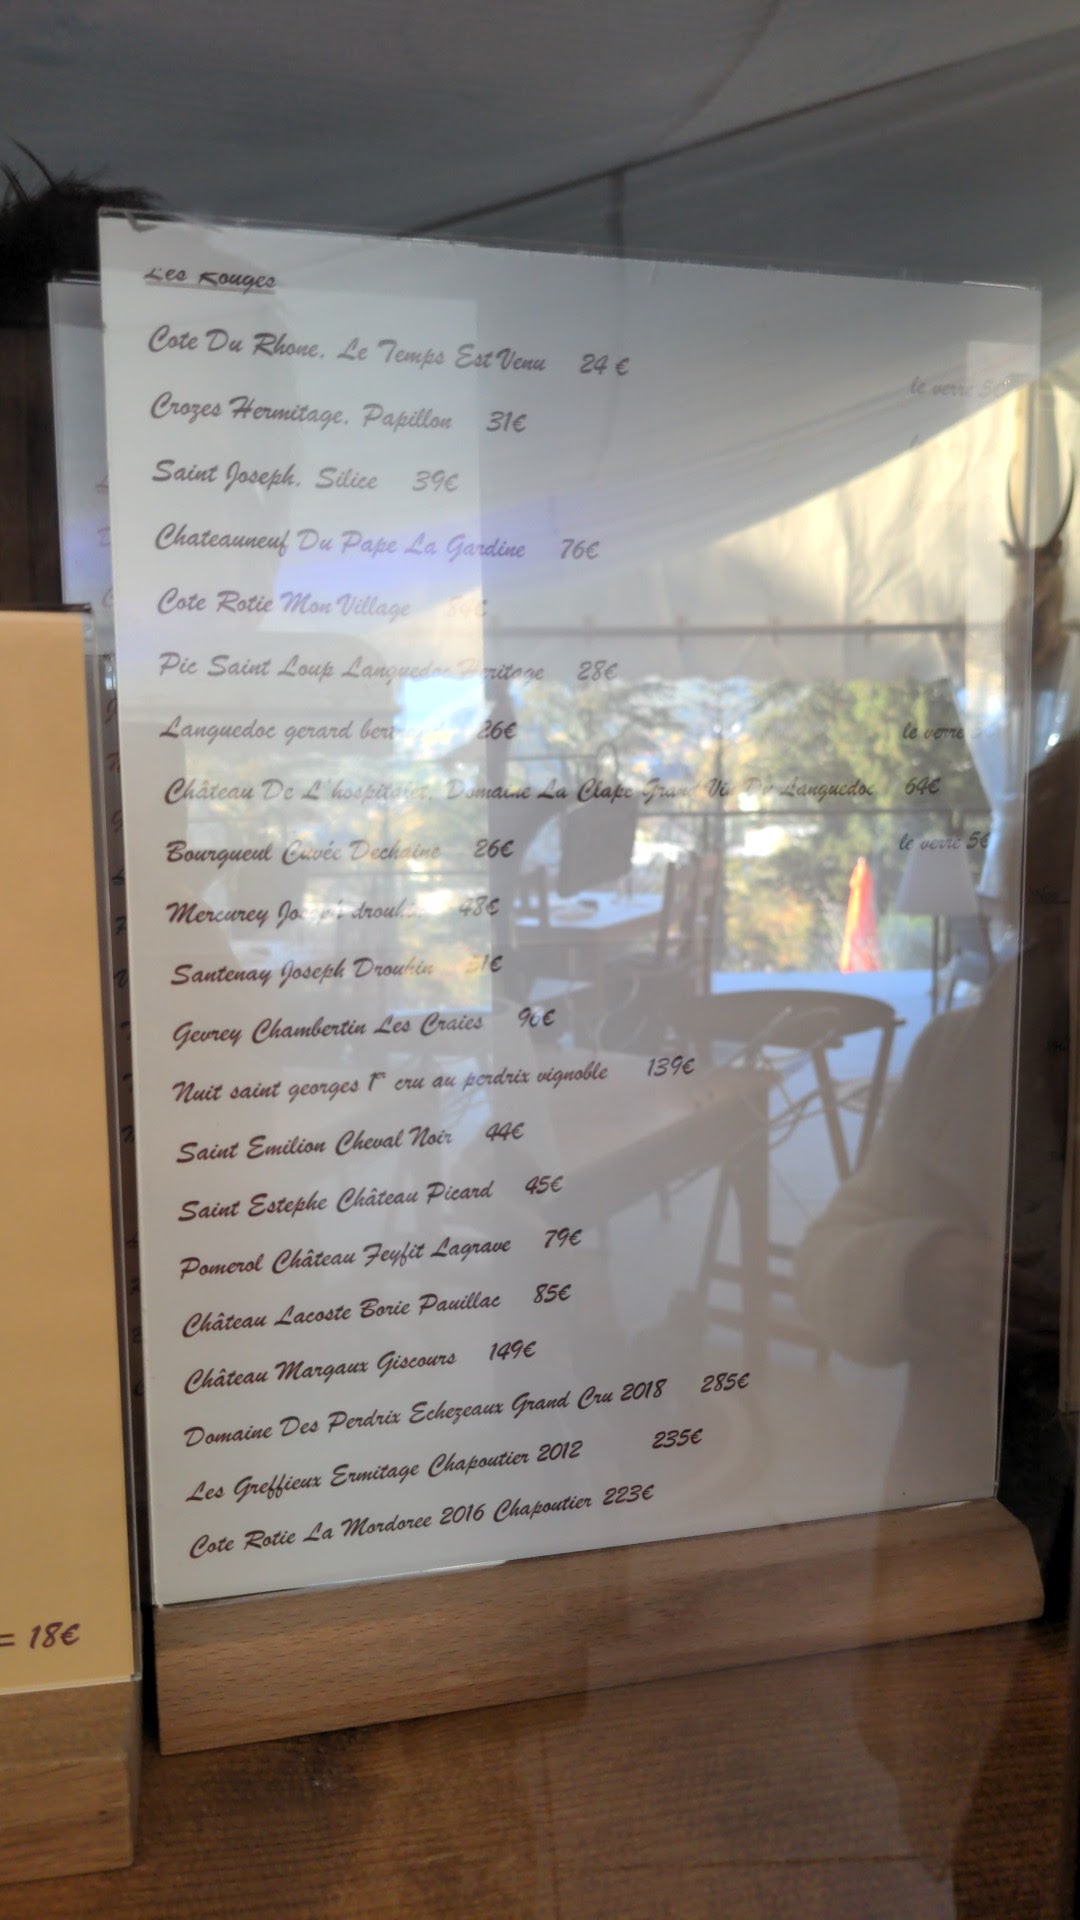 Les Rouges
Cote Du Rhone, Le Temps Est Venu 24 € le verre 5€
Crozes Hermitage, Papillon 31€
Saint Joseph, Silice 39€
Chateauneuf Du Pape La Gardine 76€
Cote Rotie Mon Village
Pic Saint Loup Languedoc Heritage 28€
Languedoc gerard 26€ le verre
Château De L'hospitalet, Domaine La Clape Grand Vin Du Languedoc 64€
Bourgueul Cuvée Dechainé 26€ le verre 5€
Mercurey Joseph drouhin 48€
Santenay Joseph Drouhin
Gevrey Chambertin Les Craies 96€
Nuit saint georges 1er cru au perdrix vignoble 139€
Saint Emilion Cheval Noir 44€
Saint Estephe Château Picard 45€
Pomerol Château Feyfit Lagrave 79€
Château Lacoste Borie Pauillac 85€
Château Margaux Giscours 149€
Domaine Des Perdrix Echezeaux Grand Cru 2018 285€
Les Greffieux Ermitage Chapoutier 2012 235€
Cote Rotie La Mordoree 2016 Chapoutier 223€
= 18€